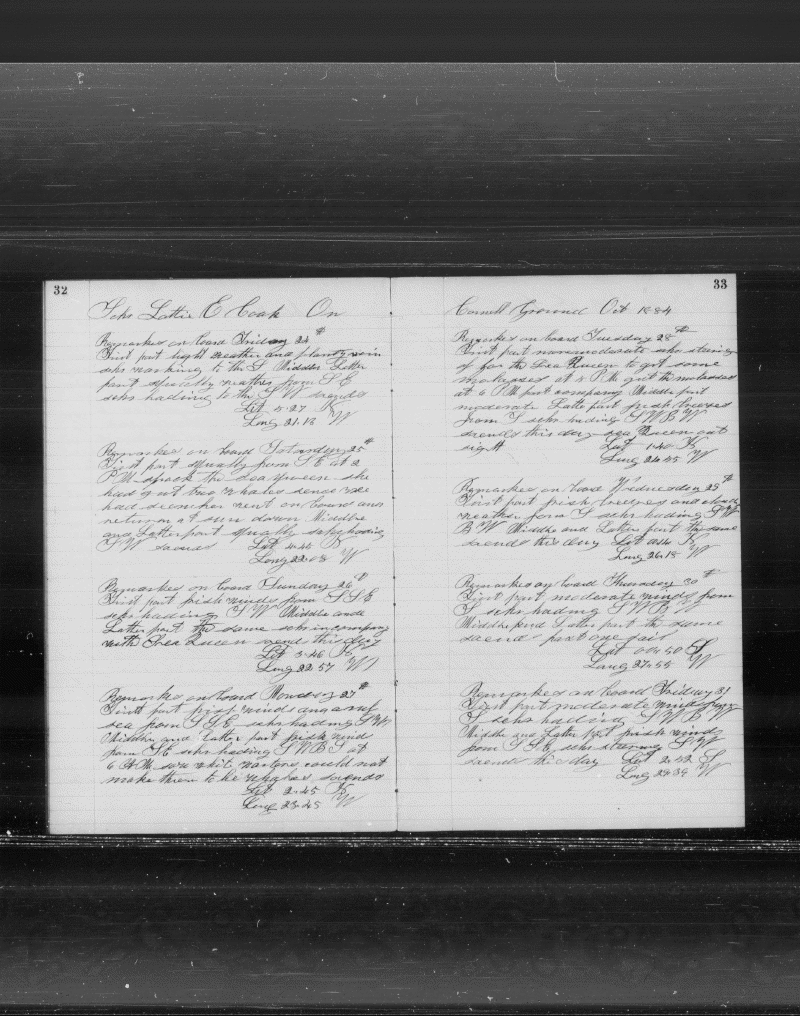 32
Schr Lottie E Cook On
Remarkes on board Friday 24th
First part light weather and plenty rain
schr working to the S Middle Latter
part squally weather from S E
schr hading to the S W soends
Lat 5·27 N
Long 21·18 W
Remarkes on board Satarday 25th
First part squally from S E at 2
P M spock the Sea Queen she
had got two whales sence we
had seen her went on board and
return at sun down Middle
and Latter part squally schr hading
S W soends Lat 4·44 N
Long 22·08 W
Remarkes on board Sunday 26th
First part frish winds from S S E
schr hading S W Middle and
Latter part the same schr in company
with Sea Queen soend this day
Lat 3·46 N
Long 22·57 W
Remarkes on board Monday 27th
First part frish winds and a ruf
sea from S S E schr hading S W
Middle and latter part frish wind
from S E schr hading S W B S at
6 A M saw whit warter could not
make them to be whales soends
Lat 2·45 N
Long 23·45 W
33
Cornell Ground Oct 1884
Remarkes on board Tuesday 28th
First part moremoderate schr
of for the Sea Queen to get some
molasses at 4 P M got the molasses
at 6 P M part company Middle part
moderate Latter part frish breezes
from S schr hading S W B W
soends this day sea Queen out
sight Lat 1·40 N
Long 24·45 W
Remarkes on board Wednesday 29th
First part frish breezes and cloudy
weather from S schr hading S W
B W Middle and Latter part the same
soends this day Lat 0·44 N
Long 26·18 W
Remarkes on board Thursday 30th
First part moderate winds from
S schr hading S W B W
Middle and Latter part the same
soends part one fair
Lat 00·50 S
Long 27·55 W
Remarkes on board Friday 31
First part moderate winds from
S schr hading S W B W
Middle and Latter part frish winds
from S S E schr stearing S W
soends this day Lat 2·42 S
Long 29·39 W